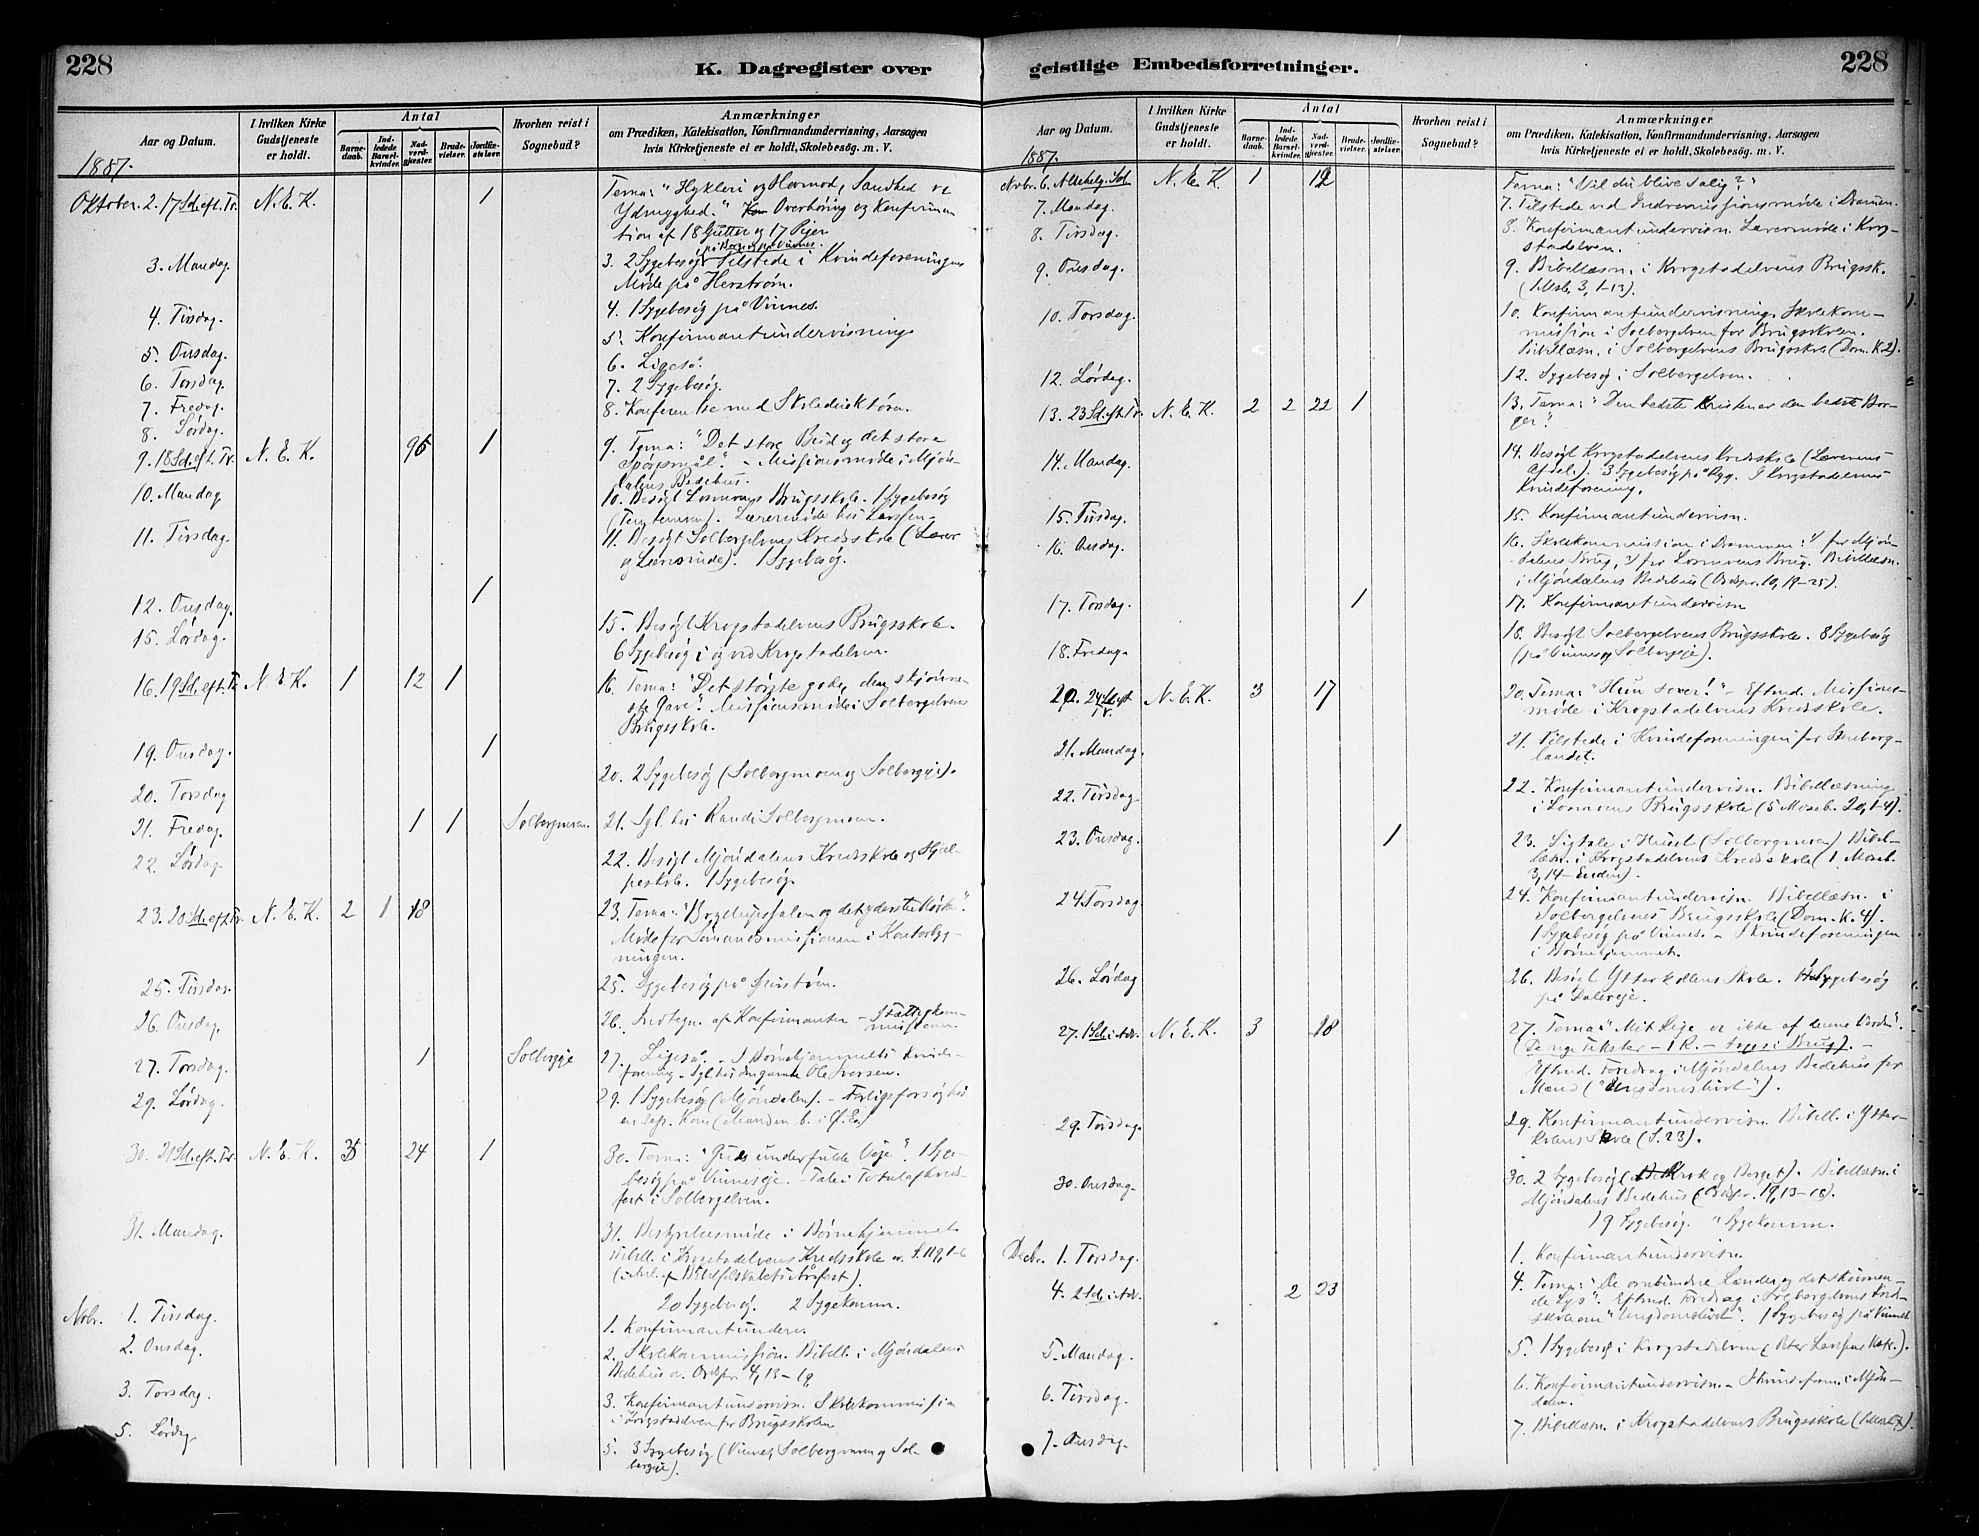 228
K. Dagregister over
Aar og Datum.
I hvilken Kirke Gudstjeneste er holdt.
Antal
Barnedaab.
Indledede Barselkvinder.
Nadverdgjæster.
Brudevielser.
Jordfæstelser.
Hvorhen reist i Sognebud?
Anmærkninger
om Prædiken, Katekisation, Konfirmandundervisning, Aarsagen
hvis Kirketjeneste ei er holdt, Skolebesøg. m. V.
1887.
Oktober. 2. 17 Sd. eft. Tr. N. E. K. 1 Tema: "Hykleri og Hovmod, Sandhed og
Ydmyghed." Overhöring og Konfirma
tion af 18 Gutter og 17 Piger
3. Mandag. 3. 2 Sygebesög Tilstede i Kvindeforeningens
Møde på Herstrøm.
4. Tirsdag. 4. 1 Sygebesög på Vinnes.
5. Onsdag. 5. Konfirmantundervisning.
6. Torsdag. 6. Ligeså.
7. Fredag. 7. 2 Sygebesög.
8. Lørdag. 8. Konferentse med Skoledirektøren.
9. 18 Sd. eft. Tr. N. E. K. 96 1 9. Tema: "Det store Bud og det store
Spörgsmål." – Missionsmöde i Mjön-
dalens Bedehus.
10. Mandag 10. Besögt Losmoens Brugsskole. 1 Sygebesög
Lærermöde hos
11. Tirsdag. 11. Besögt Solbergelvens Kredsskole (Lærer
og Lærerinde). 1 Sygebesög.
12. Onsdag. 1
15. Lørdag. 15. Besögt Krogstadelvens Brugsskole.
6 Sygebesög i og ved Krogstadelven.
16. 19 Sd. eft. Tr. N. E. K. 1 12 1 16. Tema: "Det störste gode, den skjönne-
ste Gave". Missionsmöde i Solbergelvens
Brugsskole.
19. Onsdag. 1
20. Torsdag 20. 2 Sygebesög (Solbergmoen og Solbergeje).
21. Fredag. 1 1 Solbergmoen. 21. Sgl. hos Randi Solbergmoen.
22. Lørdag. 22. Besögt Mjöndalens Kredsskole og Hjæl-
peskole. 1 Sygebesög.
23. 20 Sd. eft. Tr. N. E. K. 2 1 18 23. Tema: "Bryllupssalen og det yderste Mørke".
Møde for Sömandsmissionen i Kontorbyg-
ningen.
25. Tirsdag. 25. Sygebesög på
26. Onsdag. 26. Indtegn. af Konfirmanter – Fattigkom-
missionen.
27. Torsdag. 1 Solbergeje 27. Ligeså. – I Børnehjemmets Kvinde-
forening – Sgl. hos den gamle Ole Iversen.
29. Lørdag. 29. 1 Sygebesög (Mjöndalen). – Forligsforsög hos
30. 21 Sd. eft. Tr. N. E. K. 24 1 30. Tema: "Guds underfulde Veje". 1 Syge-
besög på Vinneseje. – Tale i Totalafholds-
fest i Solbergelven.
31. Mandag. 31. Bestyrelsesmöde i Börnehjemmet
Bibell. i Krogstadelvens Kredsskole
20 Sygebesög. 2 Sygekomm.
Novbr. 1. Tirsdag. 1. Konfirmantunderv.
2. Onsdag. 2. Skolekommission. Bibell. i Mjöndalens
Bedehus
3. Torsdag. 3. Konfirmantundervisn. Skolekommission
i Krogstadelven for Brugsskolen
5. Lørdag 5. 3 Sygebesög (Vinnes, Solbergmoen og Sol-
bergeje).
geistlige Embedsforretninger.
228
Aar og Datum.
I hvilken Kirke Gudstjeneste er holdt.
Antal
Barnedaab.
Indledede Barselkvinder.
Nadverdgjæster.
Brudevielser.
Jordfæstelser.
Hvorhen reist i Sognebud?
Anmærkninger
om Prædiken, Katekisation, Konfirmandundervisning, Aarsagen
hvis Kirketjeneste ei er holdt, Skolebesøg. m. V.
1887.
Novbr. 6. Allehelg. Sd N. E. K. 1 12 Tema: "Vil du blive salig?"
7. Mandag. 7. Tilstede ved Indremissionsmöde i Drammen.
8. Tirsdag. 8. Konfirmantundervisn. Lærermöde i Krog-
stadelven.
9. Onsdag. 9. Bibellæsn. i Krogstadelvens Brugssk.
10. Torsdag. 10. Konfirmantundervisning. Skolekom-
mission i Solbergelven for Brugsskolen.
Bibellæsn. i Solbergelvens Brugsskole (Dom. K 2).
12. Lördag. 12. Sygebesög i Solbergelven.
13. 23 Sd. eft. Tr. N. E. K. 2 2 22 1 13. Tema: "Den bedste Kristen er den bedste Bor-
ger".
14. Mandag. 14. Besögt Krogstadelvens Kredsskole (Lærerens
Afdel.). 3 Sygebesög på Ryg. I Krogstadelvens
Kvindeforening.
15. Tirsdag. 15. Konfirmantundervisn.
16. Onsdag. 16. Skolekommission i Drammen: 1) for Mjön-
dalens Brug, 2) for Losmoens Brug. Bibellæsn.
i Mjöndalens Bedehus (Ordspr. 10, 19–25).
17. Torsdag. 1 17. Konfirmantundervisn
18. Fredag. 18. Besögt Solbergelvens Brugsskole. 8 Sygebesög
(på Vinnes og Solbergeje).
20. 24 Sd. eft Tr. N. E. K. 3 17 20. Tema: "Hun sover!" – Eftmd. Missions-
möde i Krogstadelvens Kredsskole.
21. Mandag. 21. Tilstede i Kvindeforeningen for
22. Tirsdag 22. Konfirmantundervisn. Bibellæsning
i Losmoens Brugsskole (5 Moseb. 20, 1–4).
23. Onsdag. 1 23. Ligtale i Huset (Solbergmoen) Bibel-
læsn. i Krogstadelvens Kredsskole (1 Moseb.
3, 14 – Enden).
24. Torsdag 24. Konfirmantundervisn. Bibellæsn. i
Solbergelvens Brugsskole (Dom. K. 4).
1 Sygebesög på Vinnes. – I Kvindeforeningen
i Börnehjemmet.
26. Lördag 26. Besögt Ytterkollens Skole. Sygebesög
på
27. 1 Sd. i Adv. N. E. K. 3 18 27. Tema: "Mit Rige er ikke af denne Verden".
(De nye Tekster – 1 R. – tages i Brug). –
Eftmd. Foredrag i Mjöndalens Bedehus for
Mænd ("Ungdomslivet").
29. Tirsdag. 29. Konfirmantundervisn. Bibell. i Ytter-
kollens Skole (S. 23).
30. Onsdag. 30. 2 Sygebesög (Krok og Berget). Bibellæsn. i
Mjöndalens Bedehus
19 Sygebesög. " Sygekomm.
Decbr. 1. Torsdag. 1. Konfirmantundervisn.
4. 2 Sd i Adv. 2 23 4. Tema: "De ombundne Lænder og det skinnen-
de Lys". Eftmd. Foredrag i Solbergelvens Kreds-
skole om "Ungdomslivet". 1 Sygebesög på Vinnes
5. Mandag. 5. 1 Sygebesög i Krogstadelven
6. Tirsdag. 6. Konfirmantundervisn. – I Kvindeforen. i Mjön-
dalen.
7. Onsdag. 7. Bibellæsn. i Krogstadelvens Brugsskole